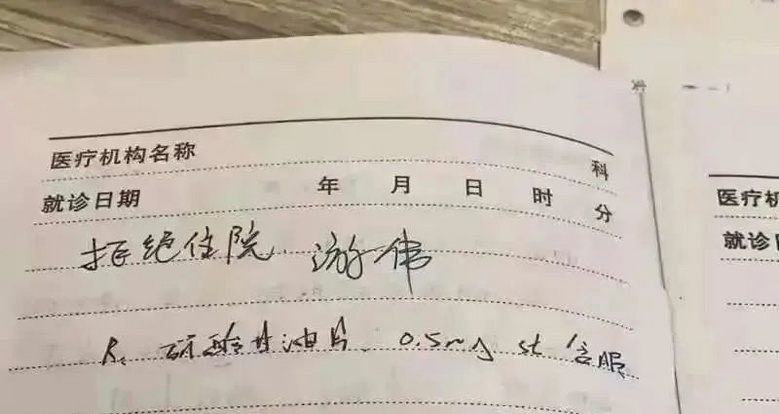 医疗机构名称 科
就诊日期 年 月 日 时 分
拒绝住院 游伟
R. 硝酸甘油片 0.5mg st 含服
医疗机
就诊